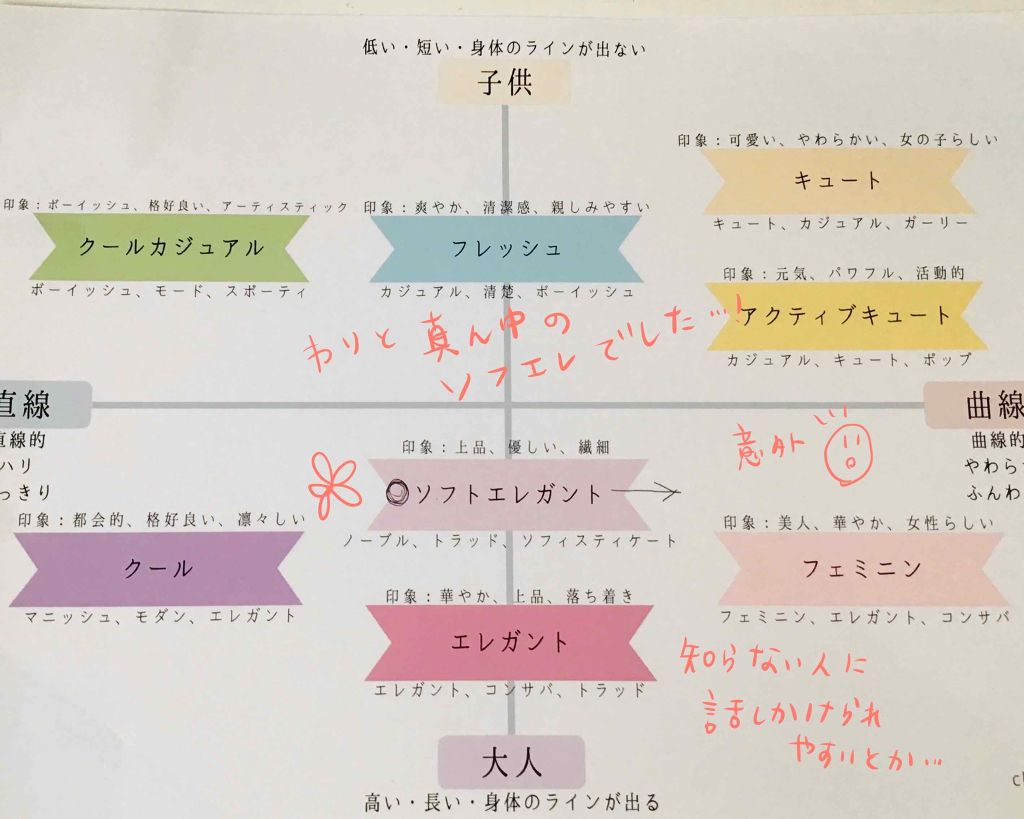 低い・短い・身体のラインが出ない
子供
印象：可愛い、やわらかい、女の子らしい
キュート
キュート、カジュアル、ガーリー
印象：ボーイッシュ、格好良い、アーティスティック
クールカジュアル
ボーイッシュ、モード、スポーティ
印象：爽やか、清潔感、親しみやすい
フレッシュ
カジュアル、清楚、ボーイッシュ
印象：元気、パワフル、活動的
アクティブキュート
カジュアル、キュート、ポップ
わりと真ん中の
ソフエレでした…!
直線
直線的
ハリ
っきり
曲線
曲線的
やわら
ふんわ
意外
印象：上品、優しい、繊細
ソフトエレガント
ノーブル、トラッド、ソフィスティケート
印象：都会的、格好良い、凛々しい
クール
マニッシュ、モダン、エレガント
印象：美人、華やか、女性らしい
フェミニン
フェミニン、エレガント、コンサバ
印象：華やか、上品、落ち着き
エレガント
エレガント、コンサバ、トラッド
知らない人に
話しかけられ
やすいとか…
大人
高い・長い・身体のラインが出る